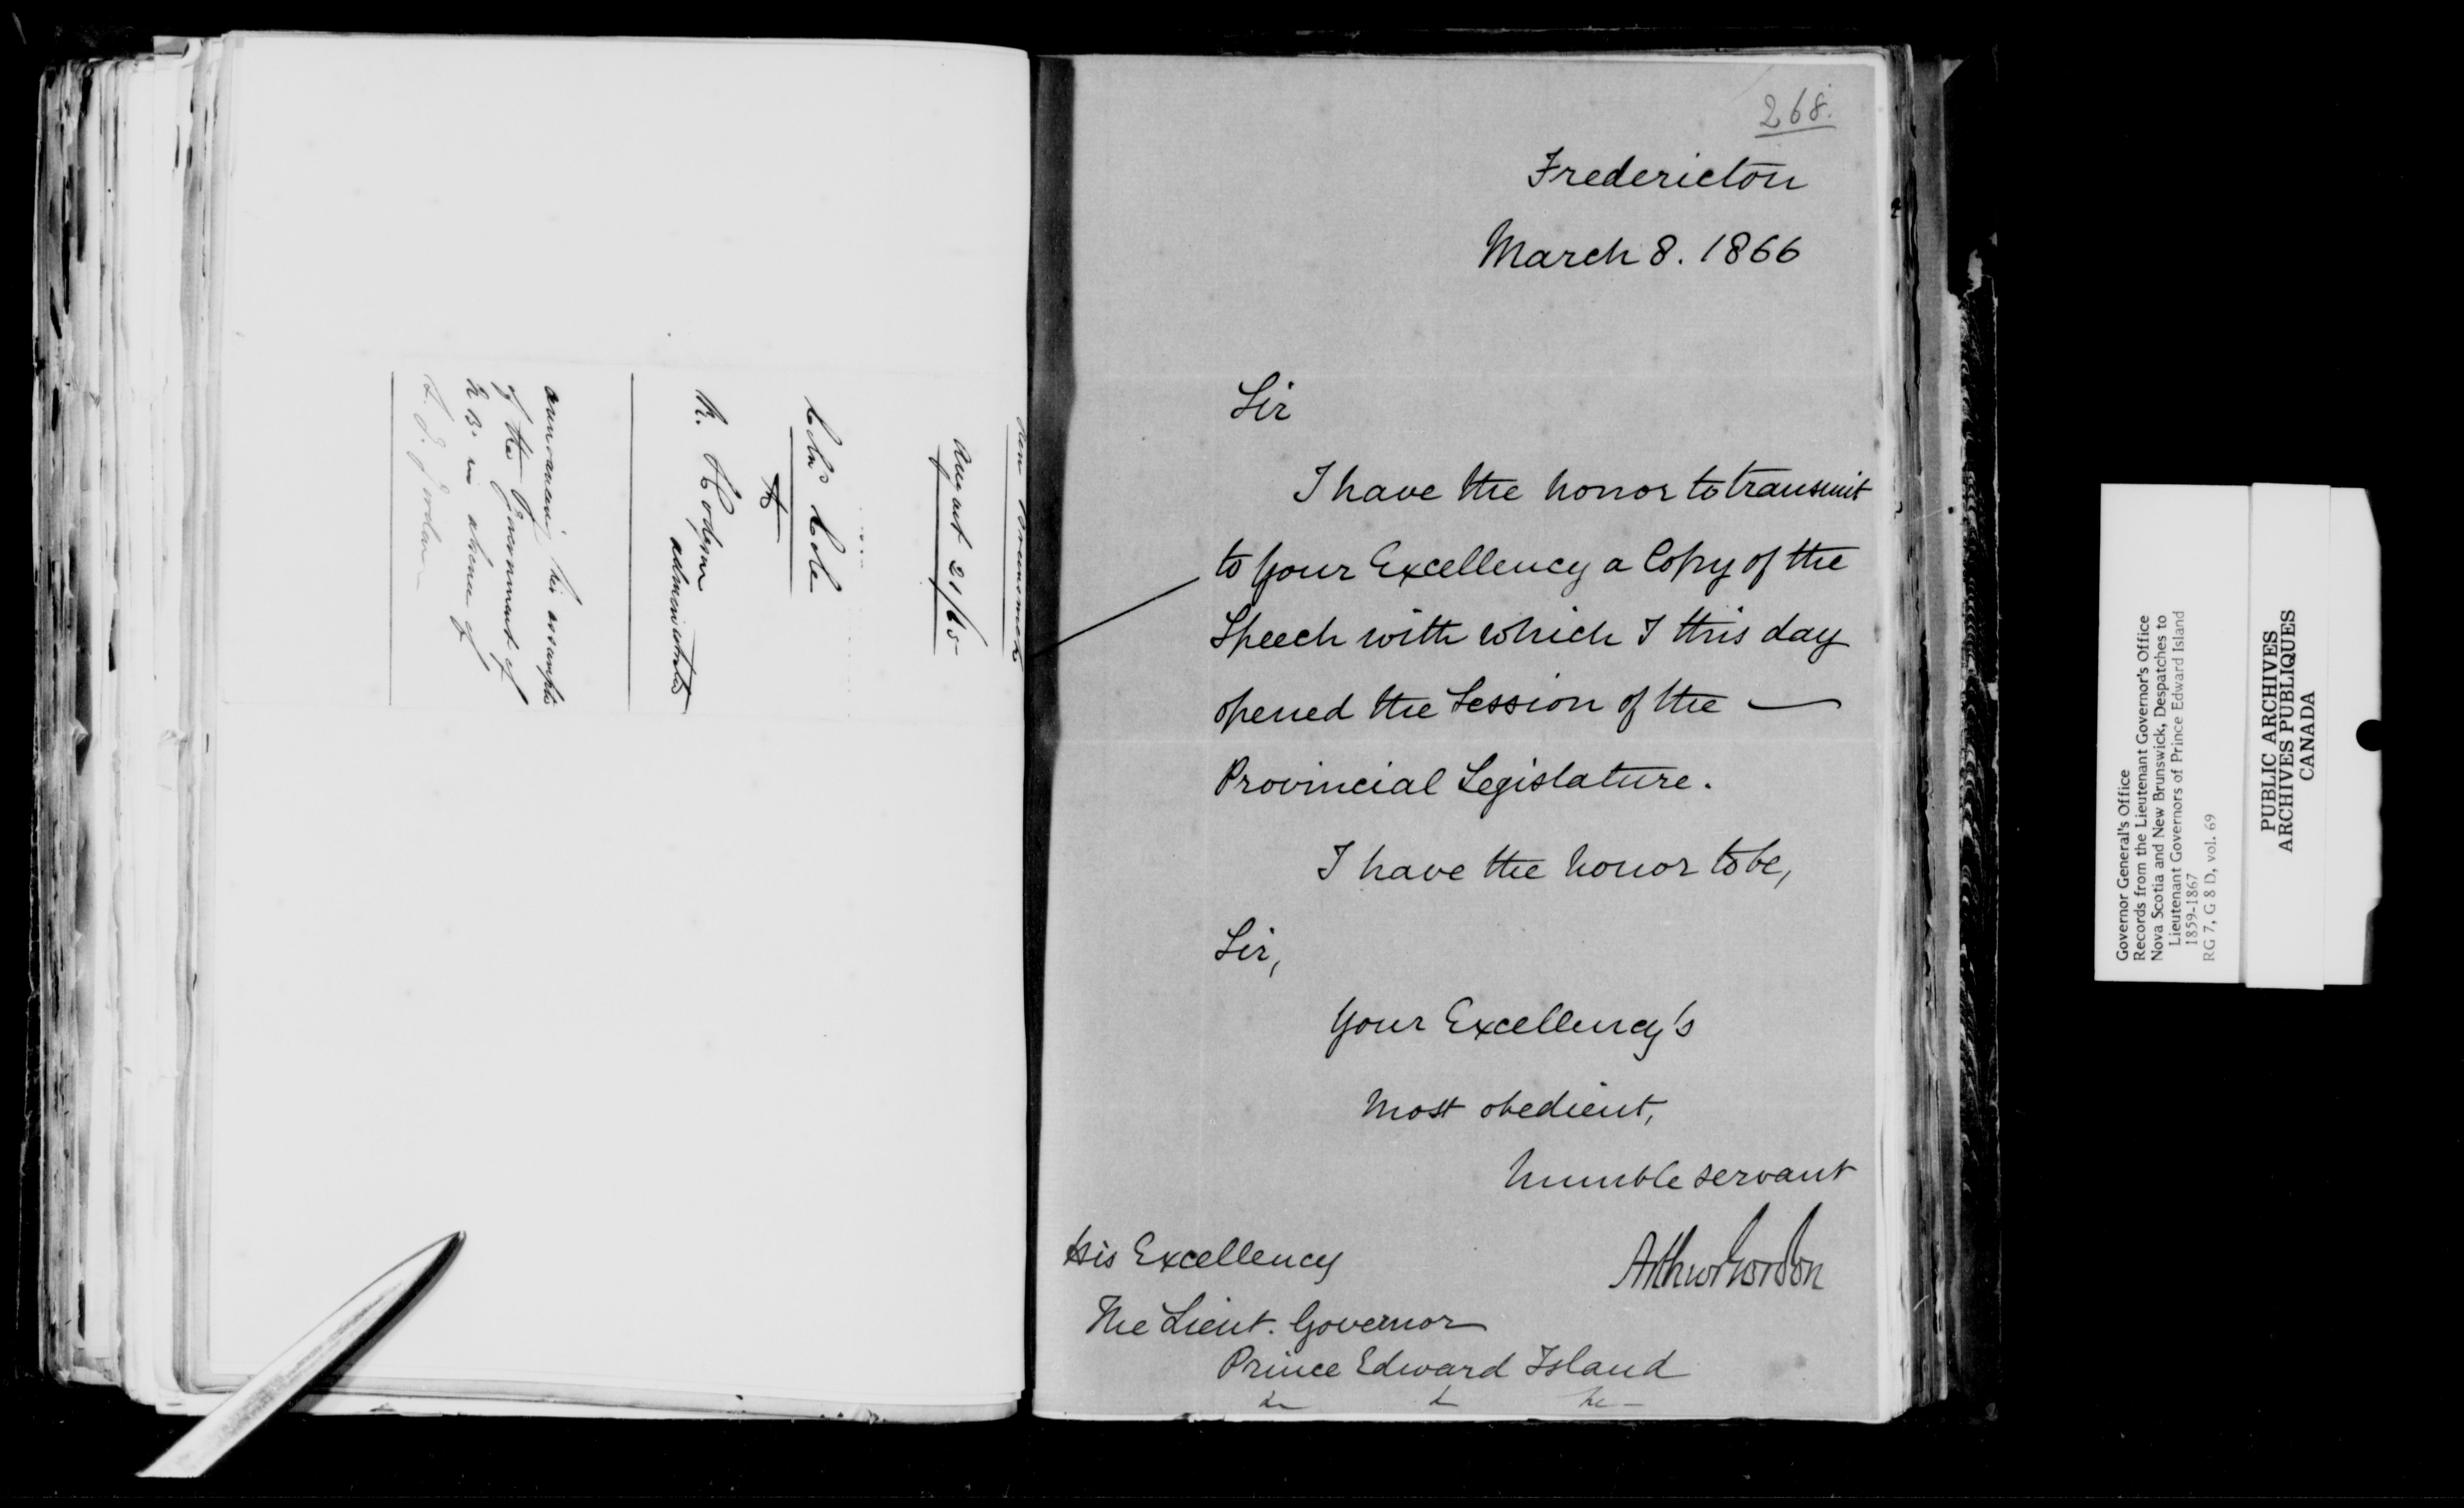 New Brunswick
August 21/65
Col: Cole
to
R. Hodgson
Administrator
announcing his assumption
of the Government of
N. B. in absence of
Gordon
268.
Fredericton
March 8. 1866
Sir
I have the honor to transmit
to Your Excellency a Copy of the
Speech with which I this day
opened the Session of the —
Provincial Legislature.
I have the honor to be,
Sir,
Your Excellency's
Most obedient,
humble servant
Arthur Gordon
His Excellency
The Lieut. Governor
Prince Edward Island
Governor General's Office
Records from the Lieutenant Governor's Office
Nova Scotia and New Brunswick, Despatches to
Lieutenant Governors of Prince Edward Island
1859-1867
RG 7, G 8 D, vol. 69
PUBLIC ARCHIVES
ARCHIVES PUBLIQUES
CANADA